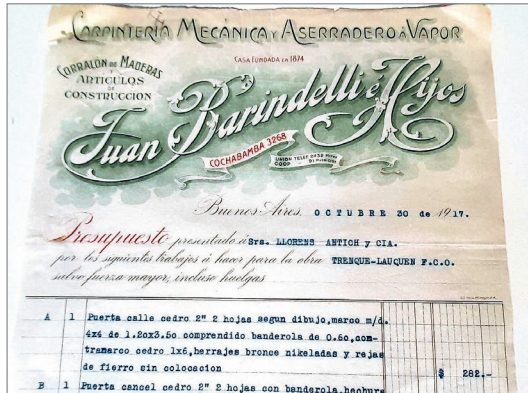 CARPINTERÍA MECÁNICA Y ASERRADERO Á VAPOR
CASA FUNDADA EN 1874
CORRALÓN DE MADERAS
Y
ARTICULOS
DE
CONSTRUCCION
Juan Barindelli é Hijos
COCHABAMBA 3268
UNION TELEF. 2438
COOP
Buenos Aires, OCTUBRE 30 de 1917.
Presupuesto presentado á Srs. LLORENS ANTICH y CIA.
por los siguientes trabajos á hacer para la obra TRENQUE-LAUQUEN F.C.O.
salvo fuerza mayor, incluso huelgas
A 1 Puerta calle cedro 2" 2 hojas segun dibujo, marco m/d.
4x4 de 1.20x3.50 comprendido banderola de 0.60, con-
tramarco cedro 1x6, herrajes bronce nikeladas y rejas
de fierro sin colocacion $ 282.-
B 1 Puerta cancel cedro 2" 2 hojas con banderola, hechura